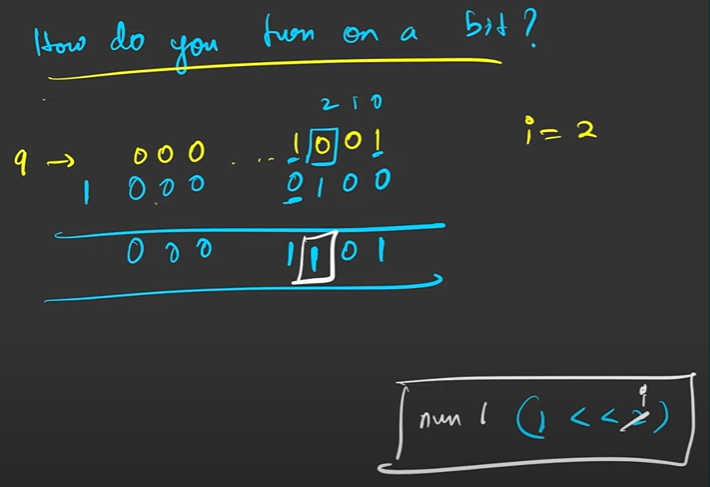 How do you turn on a bit?
2 1 0
9 → 0 0 0 .... 1 0 0 1 i = 2
1 0 0 0 0 1 0 0
0 0 0 1 1 0 1
i
num | (1 << 2)